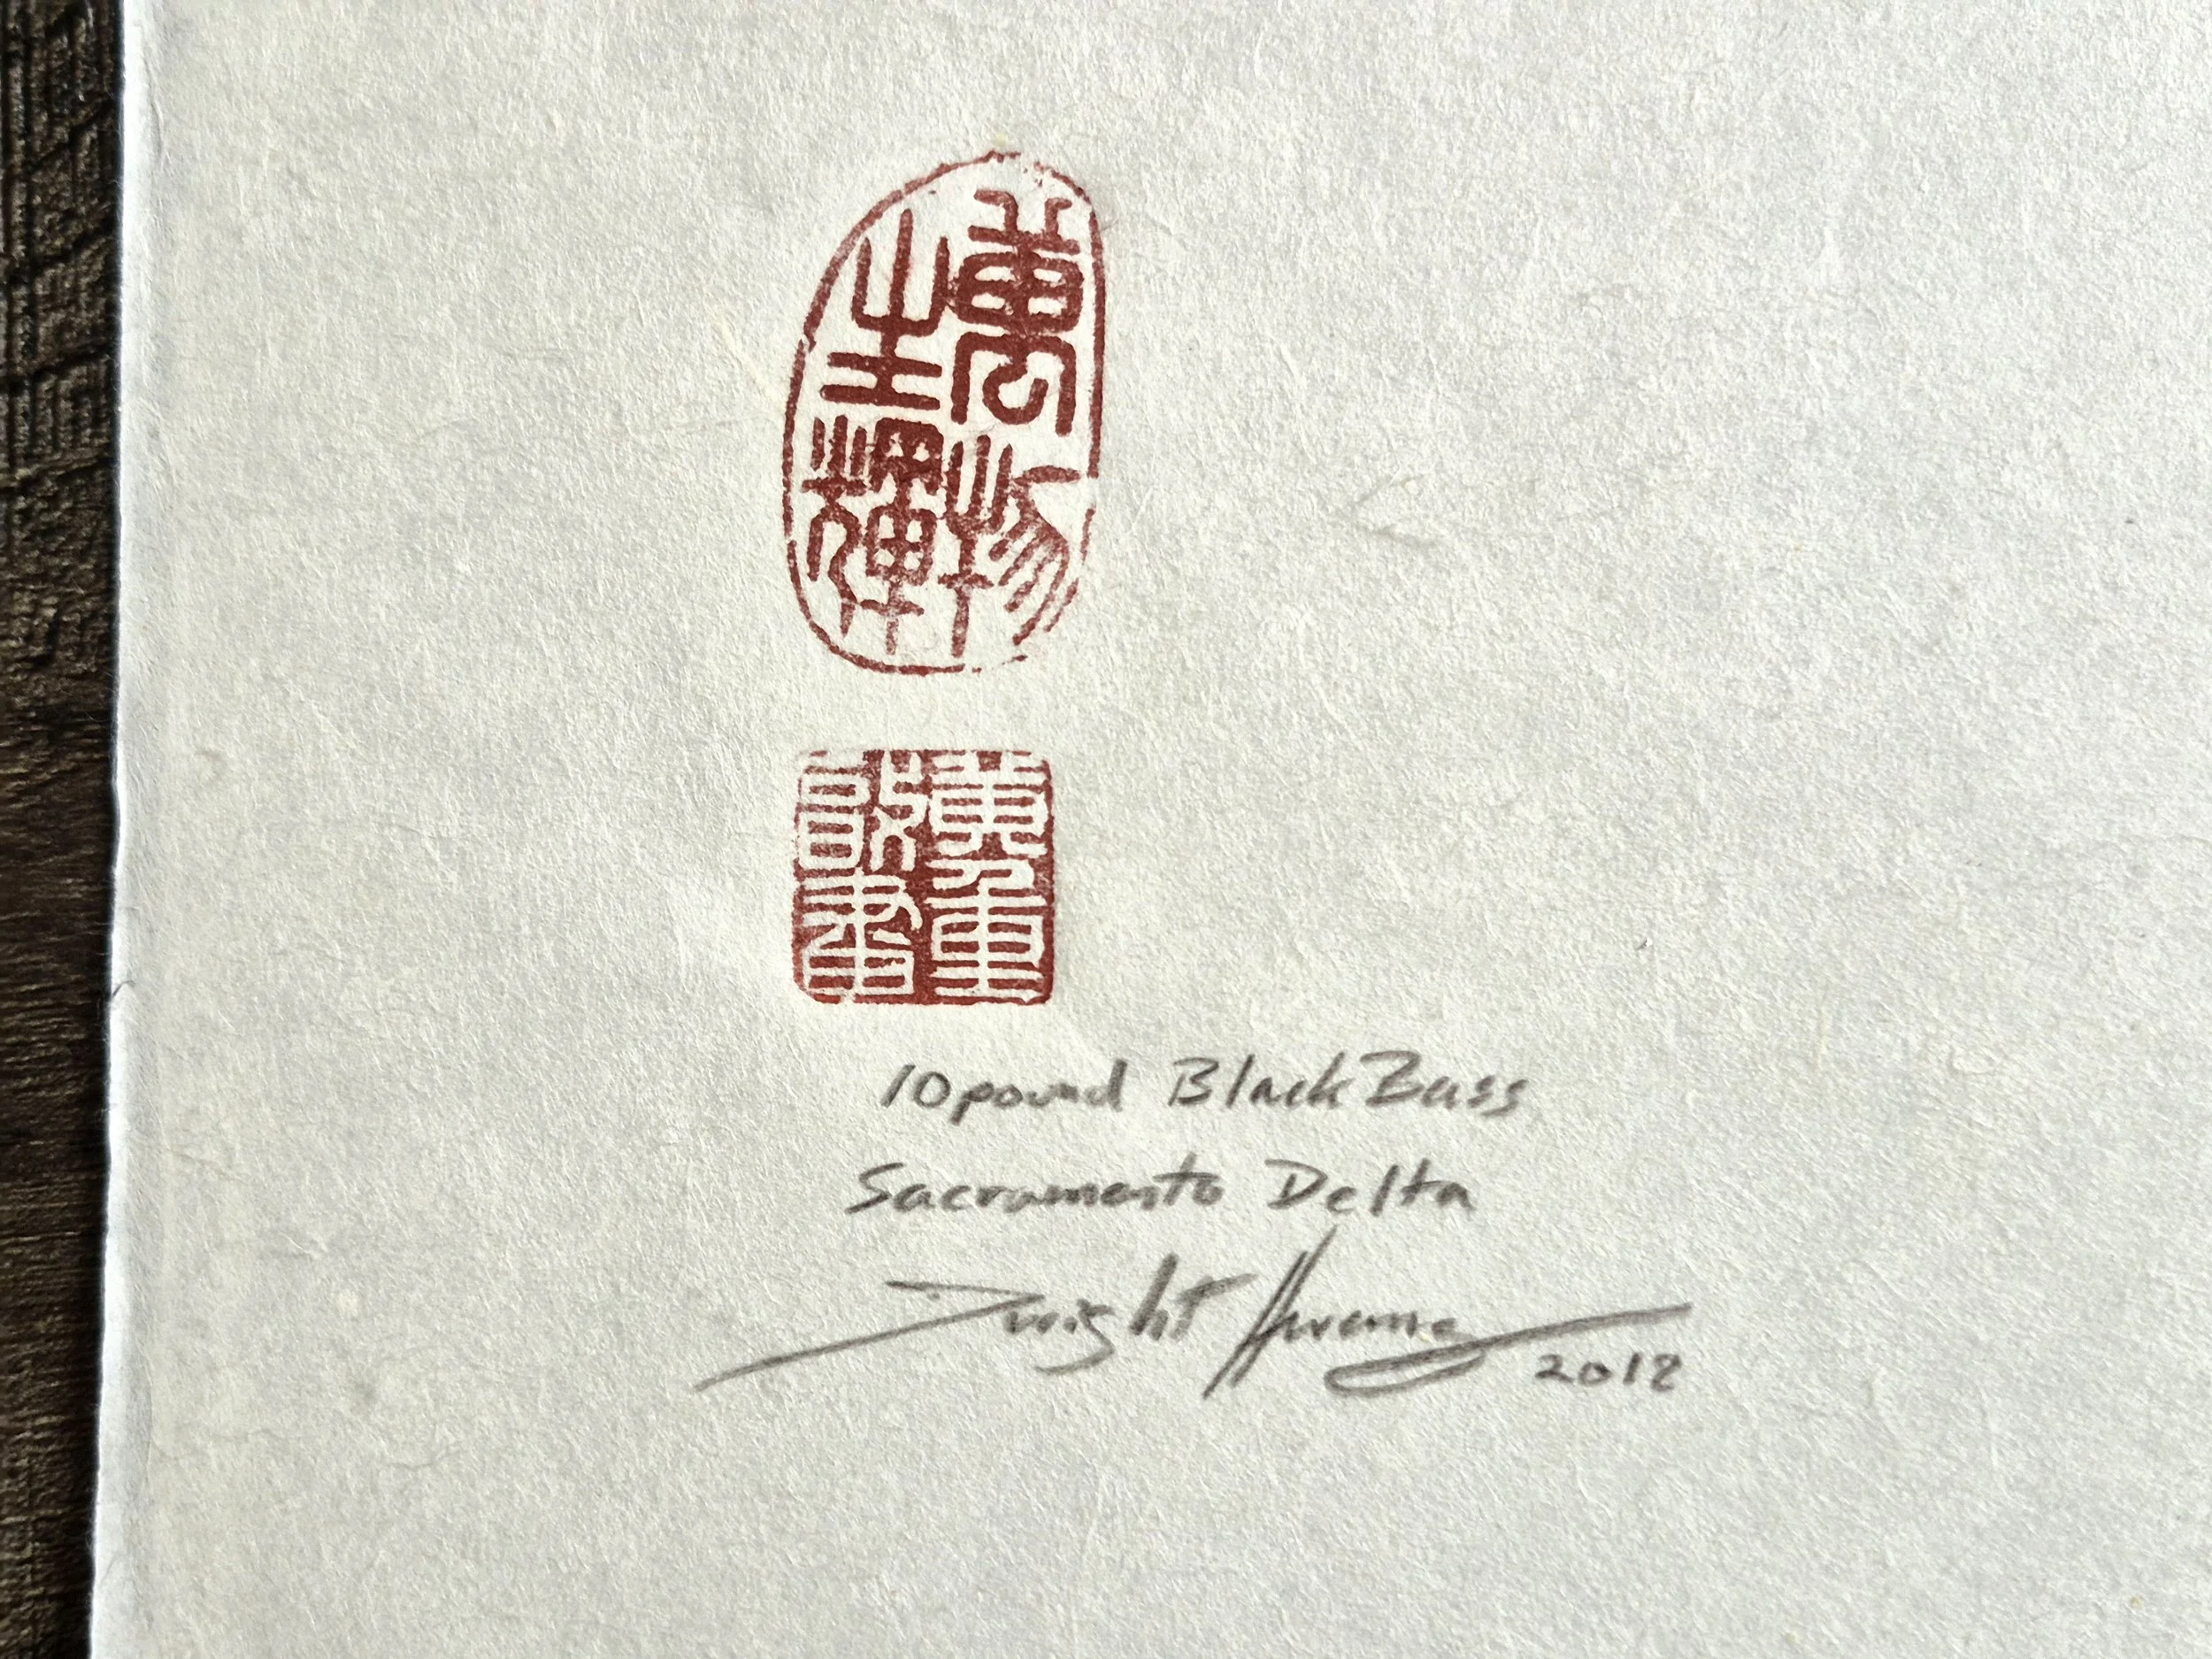 萬物
生輝
黃重
10 pound Black Bass
Sacramento Delta
Dwight Hwang
2018